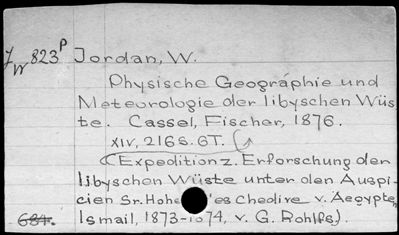 J W 823 P Jordan, W.
Physische Geographie und
Meteorologie der libyschen Wüs
te. Cassel, Fischer, 1876.
XIV, 216 S. 6T.
(Expedition z. Erforschung der
libyschen Wüste unter den Auspi-
cien Sr. Hohe es Chedive v. Aegypte
684. Ismail, 1873-1874, v. G. Rohlfs).